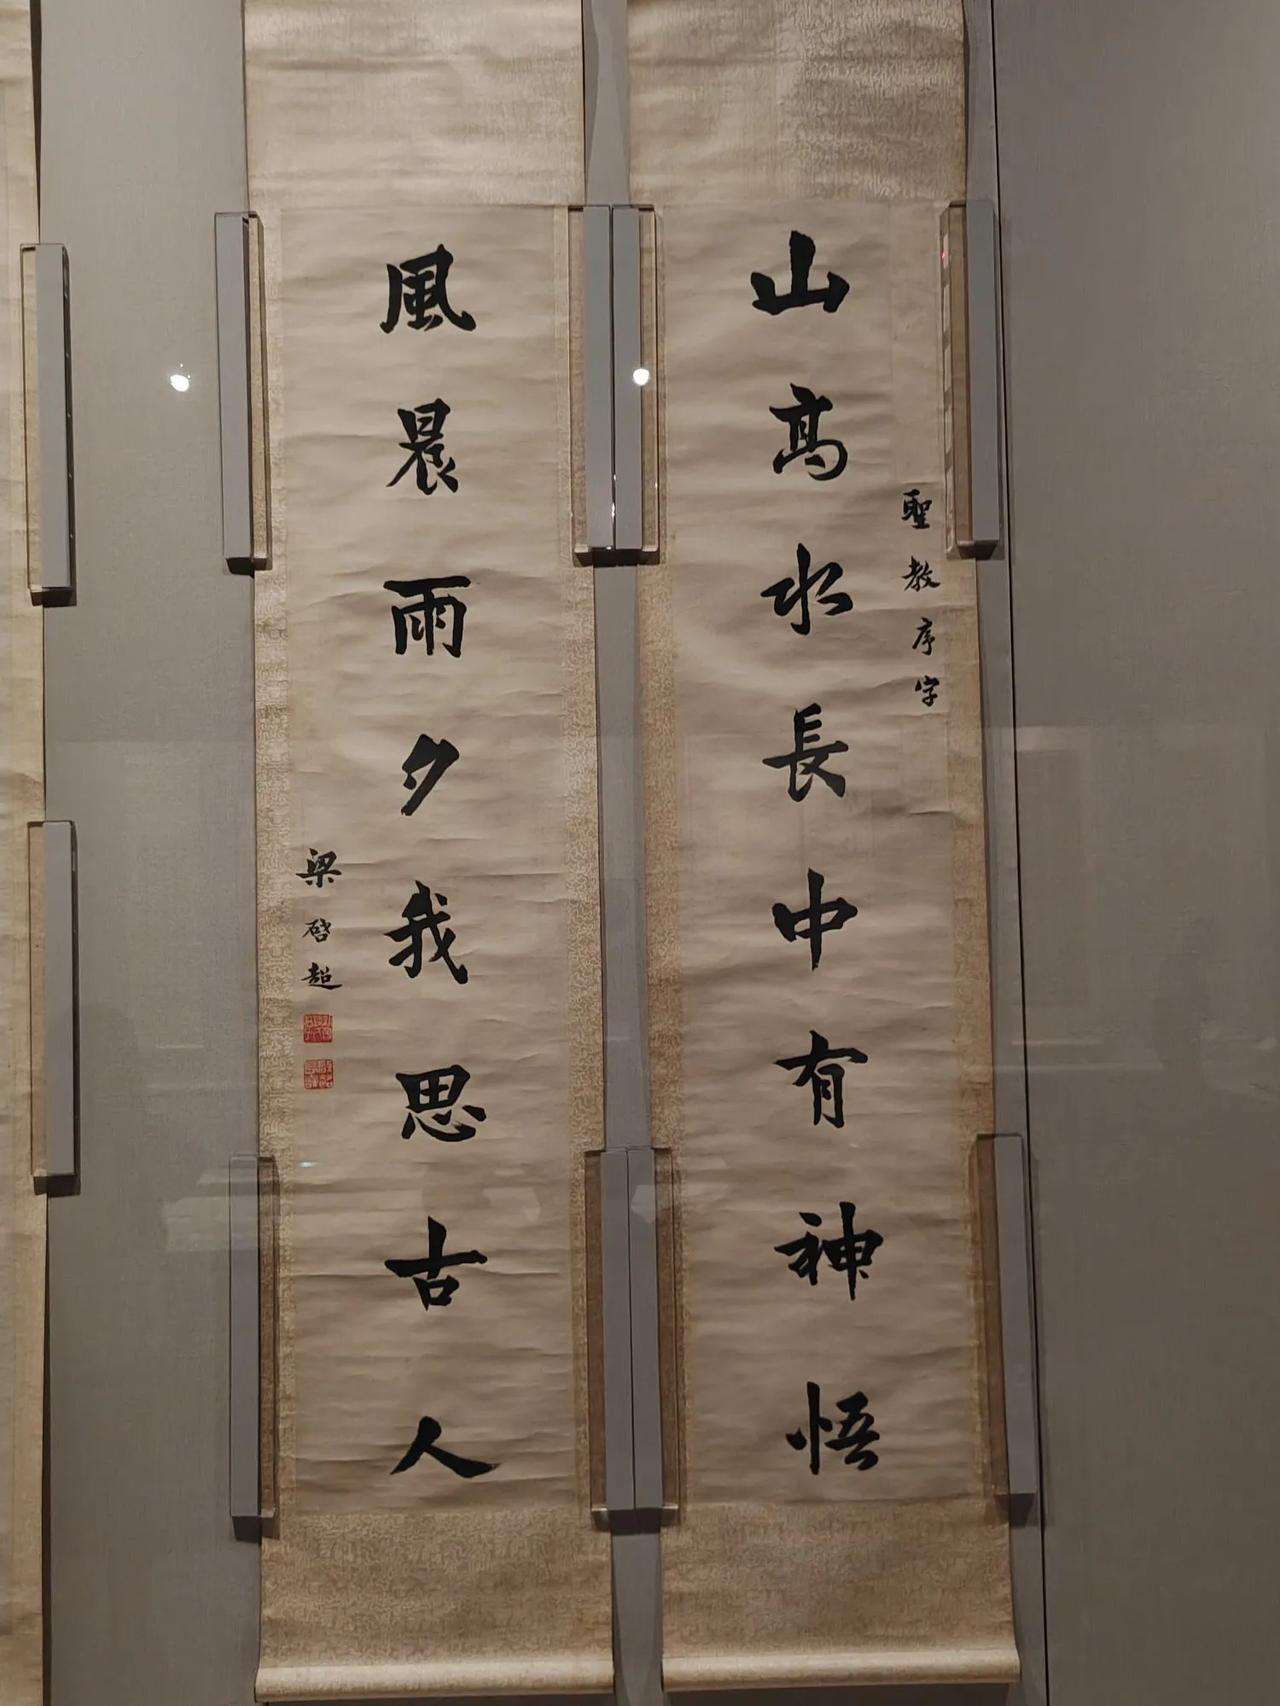 山高水長中有神悟
聖教序字
風晨雨夕我思古人
梁啓超